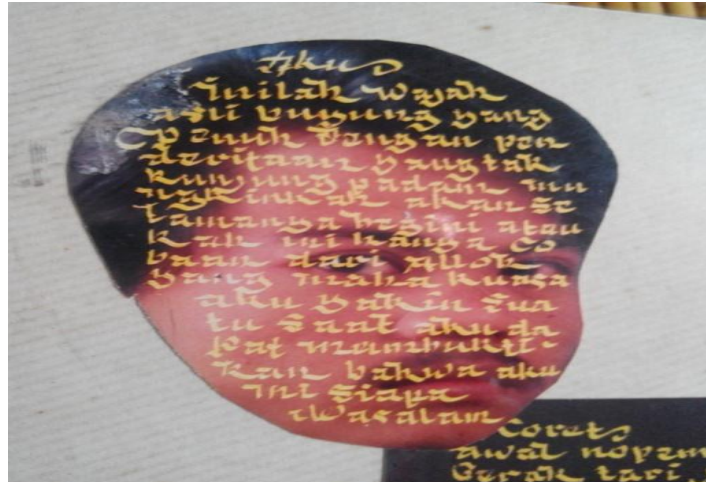 Aku
Inilah wajah
asli buyung yang
penuh dengan pen
deritaan yang tak
kunjung padam mu
ngkinkah akan se
lamanya begini atau
kah ini hanya co
baan dari Alloh
yang maha kuasa
aku yakin sua
tu saat aku da
pat membukti-
kan bahwa aku
ini siapa
Wasalam
Corets
awal nopem
Gerak tari,